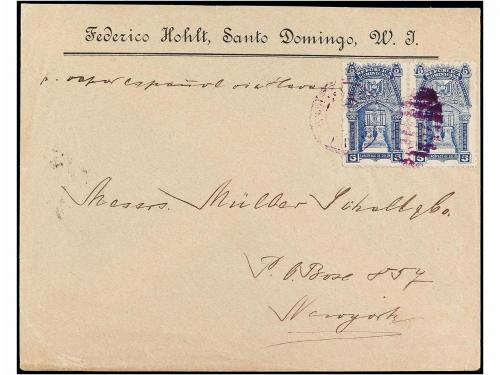 Federico Hohlt, Santo Domingo, W. I.
p. vapor español via Havana
5 5 5 5
5 5 5 5
Messrs. Müller Schall & Co.
P. O. Box 857
Newyork